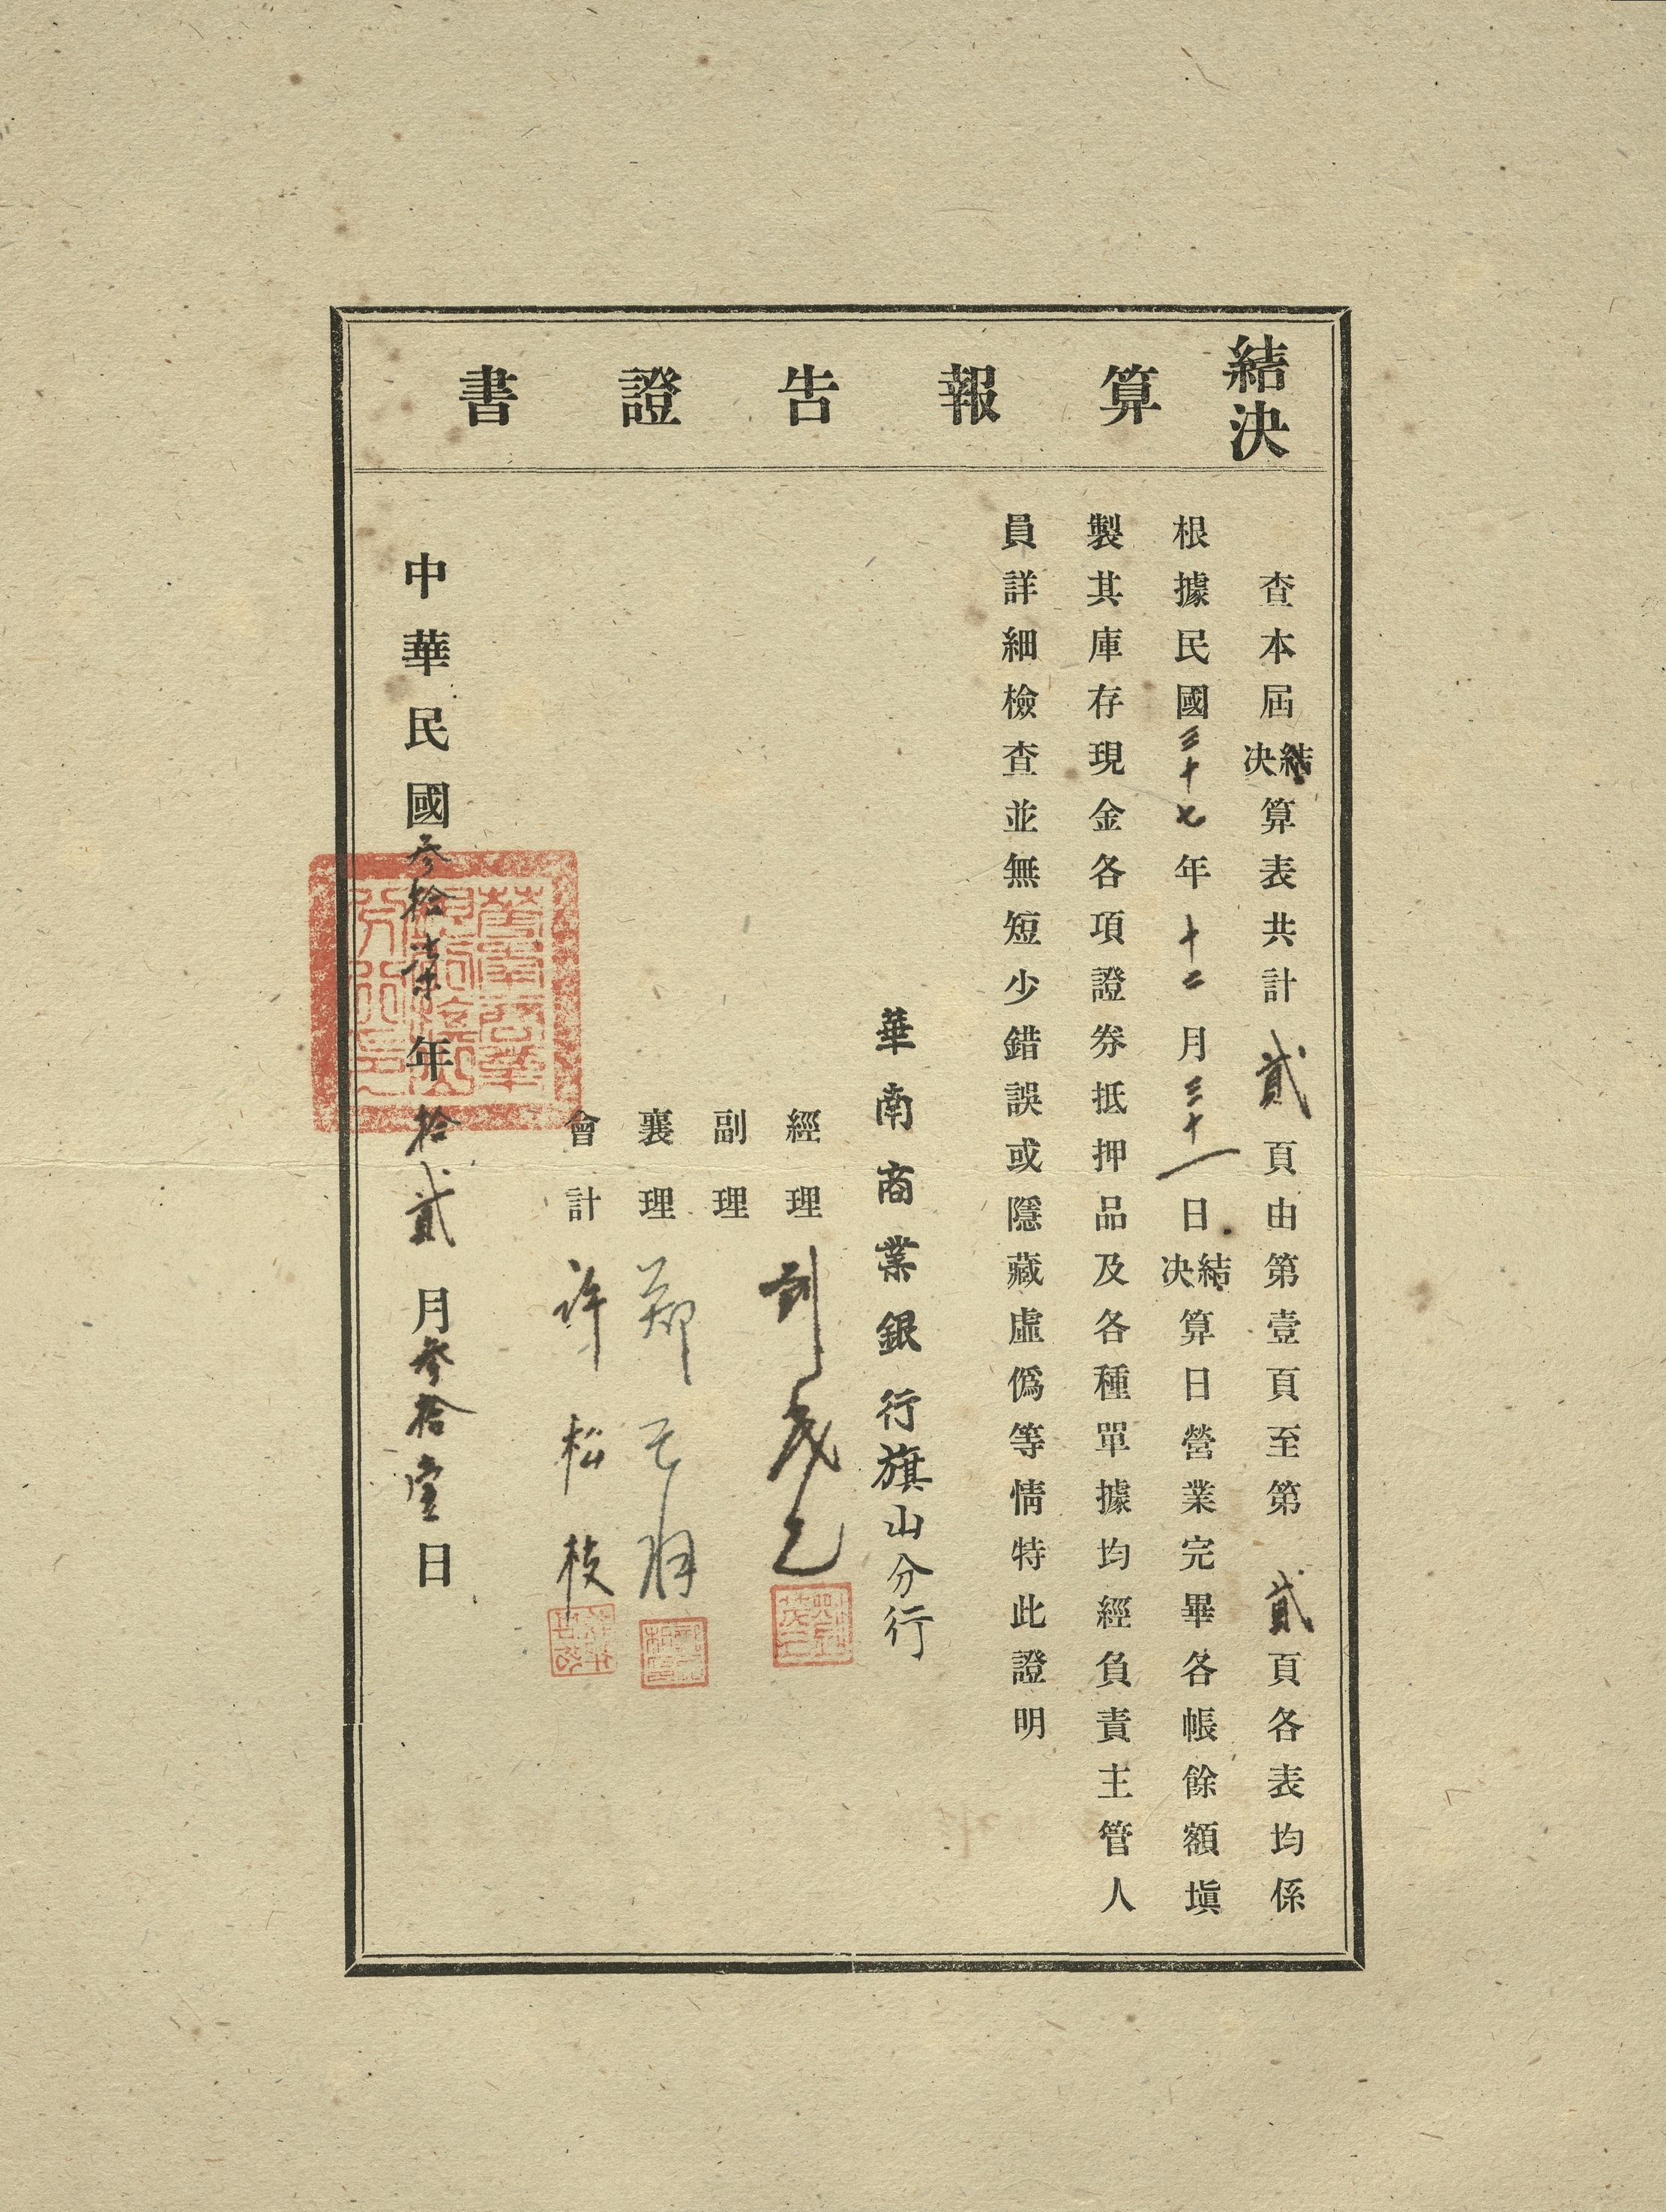 結決算報告證書
查本屆結決算表共計貳頁由第壹頁至第貳頁各表均係
根據民國三十七年十二月三十一日結決算日營業完畢各帳餘額塡
製其庫存現金各項證券抵押品及各種單據均經負責主管人
員詳細檢查並無短少錯誤或隱藏虛僞等情特此證明
華南商業銀行旗山分行
經理 劉茂己
副理
襄理 鄭
會計 許松枝
中華民國參拾柒年拾貳月參拾壹日